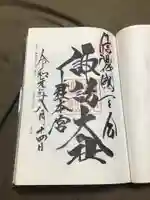 信濃國一之宮
諏訪大社
上社本宮
令和元年八月十四日